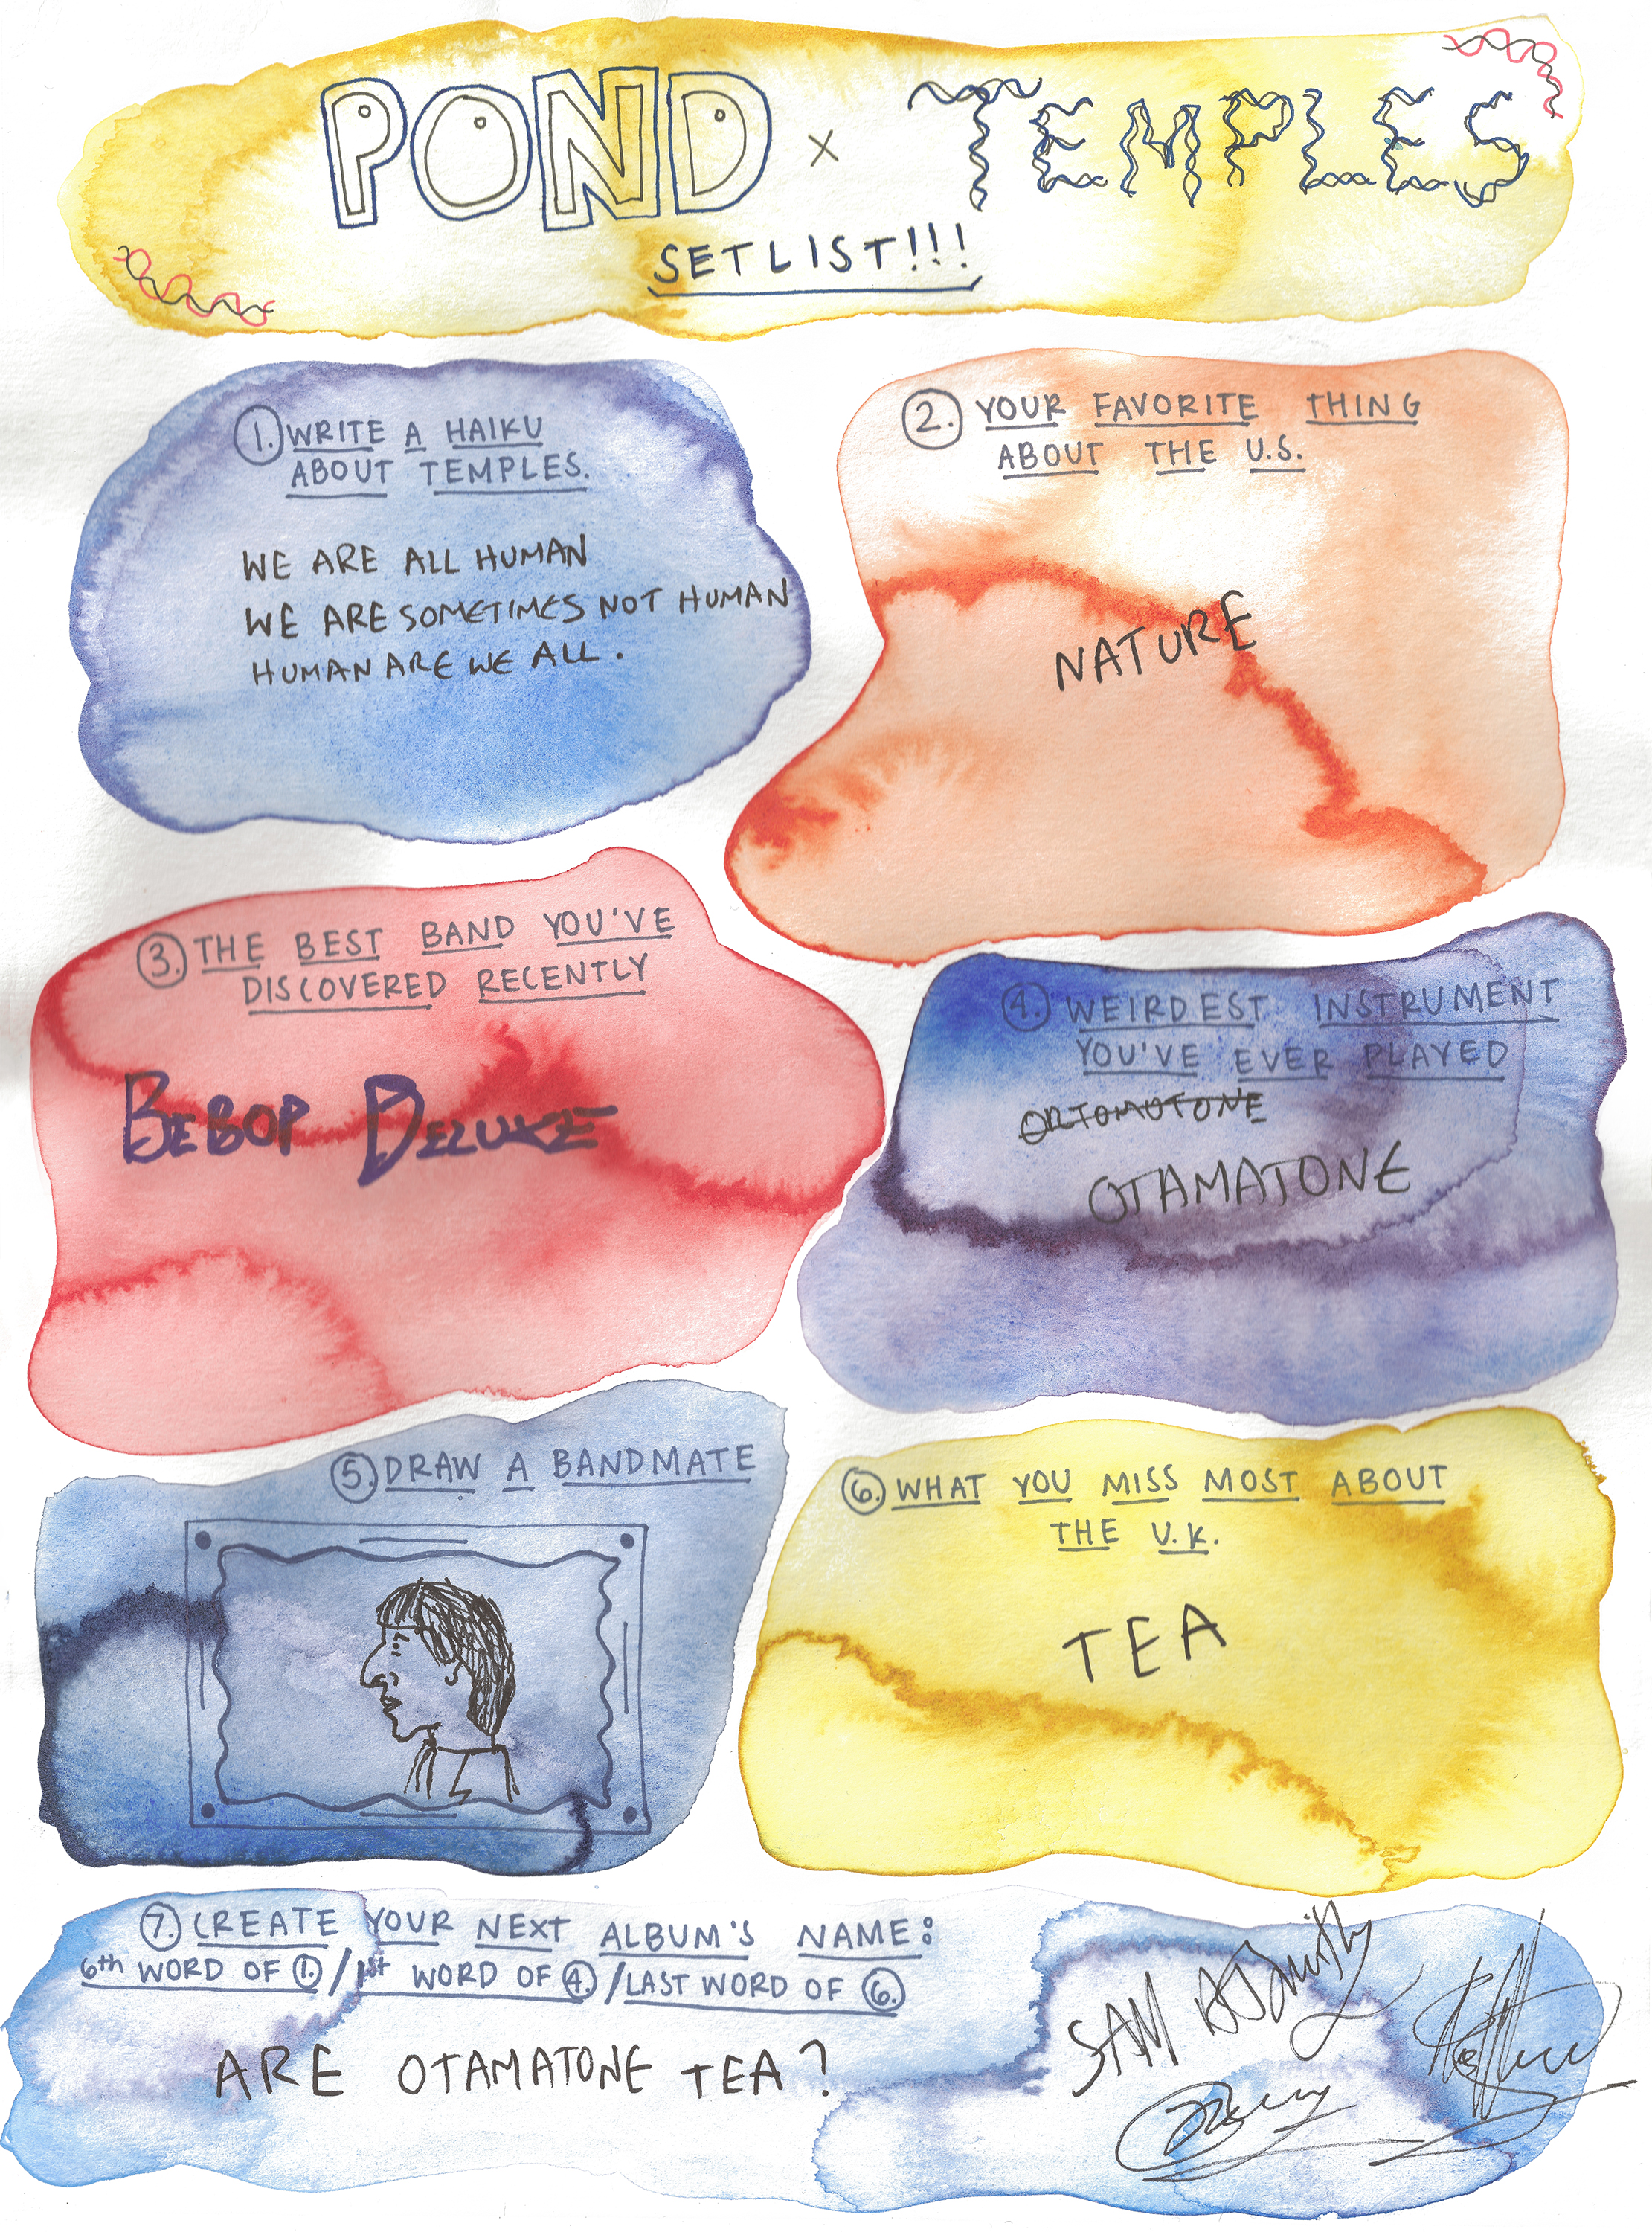 POND x TEMPLES
SETLIST!!!
1. WRITE A HAIKU
ABOUT TEMPLES.
WE ARE ALL HUMAN
WE ARE SOMETIMES NOT HUMAN
HUMAN ARE WE ALL.
2. YOUR FAVORITE THING
ABOUT THE U.S.
NATURE
3. THE BEST BAND YOU'VE
DISCOVERED RECENTLY
BEBOP DELUXE
4. WEIRDEST INSTRUMENT
YOU'VE EVER PLAYED
ORTOMOTONE
OTAMATONE
5. DRAW A BANDMATE
6. WHAT YOU MISS MOST ABOUT
THE U.K.
TEA
7. CREATE YOUR NEXT ALBUM'S NAME:
6th WORD OF 1. / 1st WORD OF 4. / LAST WORD OF 6.
ARE OTAMATONE TEA?
SAM